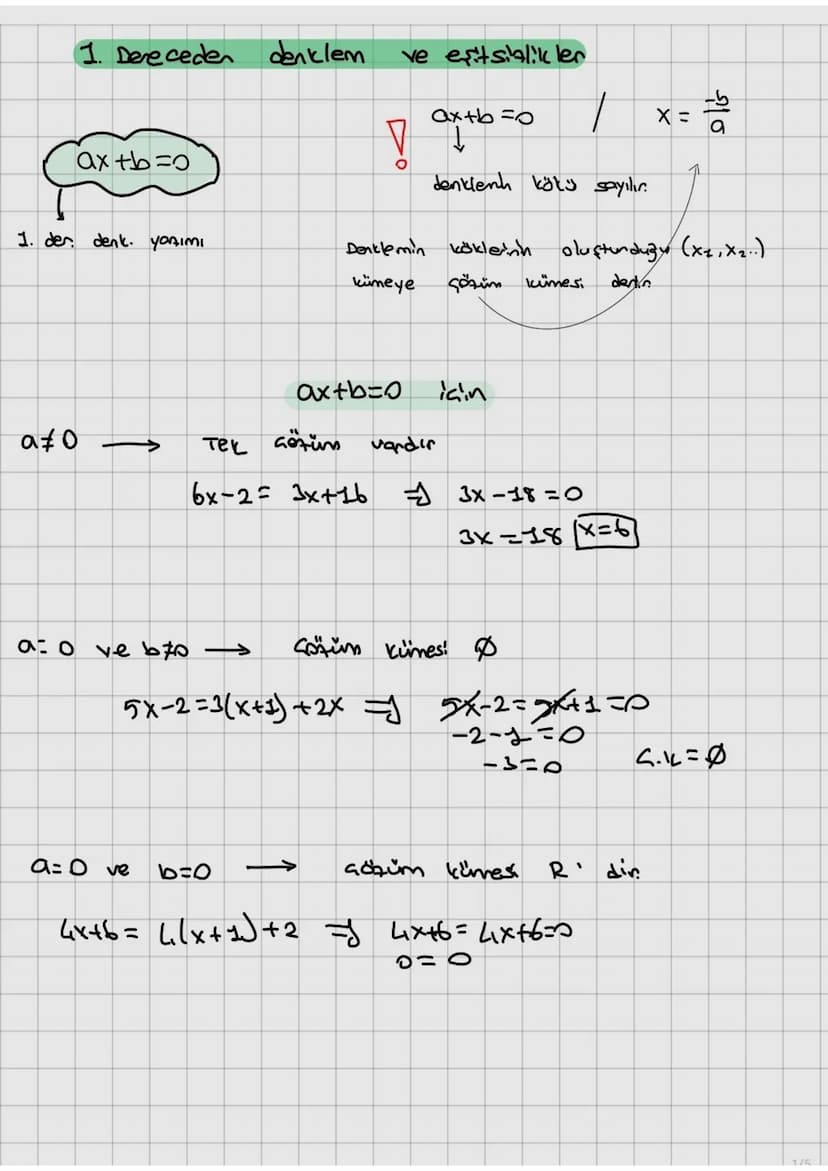 1. Dereceden denklem ve eşitsizlikler
ax+b=0 / x = -b/a
!
ax+b=0
denklemin kökü sayılır.
1. der. denk. yazımı
Denklemin köklerinin oluşturduğu (x₁,x₂..)
kümeye çözüm kümesi denir.
ax+b=0 için
a≠0 → Tek çözüm vardır
6x-2= 3x+16 ⇒ 3x-18=0
3x=18 x=6
a=0 ve b≠0 → Çözüm kümesi ∅
5x-2=3(x+1)+2x ⇒ 5x-2=5x+1=0
-2-1=0
-3=0 Ç.K=∅
a=0 ve b=0 → çözüm kümesi R' dir.
4x+6= 4(x+1)+2 ⇒ 4x+6= 4x+6=0
0=0
1/5